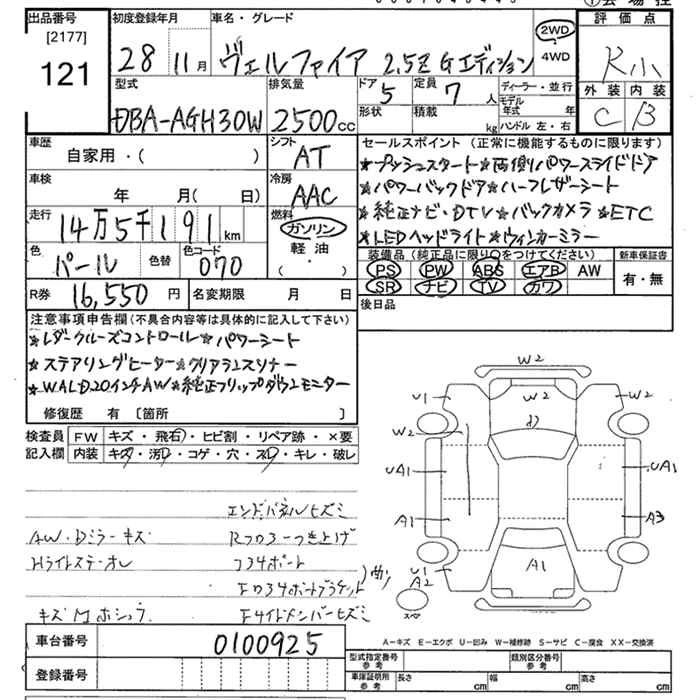 出品番号
[2177]
121
初度登録年月
28 11 月
車名・グレード
ヴェルファイア 2.5Z Gエディション
2WD
4WD
評価点
R小
外装 内装
C B
型式
DBA-AGH30W
排気量
2500 cc
ドア
5
形状
定員
7 人
積載 kg
ディーラー・並行
モデル年式 年
ハンドル 左・右
車歴
自家用・( )
シフト
AT
車検
年 月( 日)
冷房
AAC
走行
14万5千191 km
燃料
ガソリン
軽油
( ・ )
色
パール
色替
色コード
070
R券 16,550 円
名変期限 月 日
セールスポイント (正常に機能するものに限ります)
★プッシュスタート★両側パワースライドドア
★パワーバックドア★ハーフレザーシート
★純正ナビ・DTV★バックカメラ★ETC
★LEDヘッドライト★ウィンカーミラー
装備品 (純正品に限り○をつけてください)
PS PW ABS エアB AW
SR ナビ TV カワ
新車保証書
有・無
後日品
注意事項申告欄(不具合内容等は具体的に記入して下さい)
★レダークルーズコントロール★パワーシート
★ステアリングヒーター★クリアランスソナー
★WALD20インチAW★純正フリップダウンモニター
修復歴 有 [箇所 ]
検査員記入欄
FW キズ・飛石・ヒビ割・リペア跡・×要
内装 キズ・汚レ・コゲ・穴・スレ・キレ・破レ
エンドパネルヒズミ
AW・Dミラーキズ Rフロアーつき上げ
Hライトステーオレ フヨ4ポート
Fロヨ4ポートブラケット 曲り
Fサイドメンバーヒズミ
W2
U1 W2 W2
W2
UA1 UA1
A1 A3
U1
A2
A1
スペア
A-キズ E-エクボ U-凹み W-補修跡 S-サビ C-腐食 XX-交換済
車台番号 0100925
登録番号
型式指定番号 参考
類別区分番号 参考
車庫証明用 参考 長さ cm 幅 cm 高さ cm